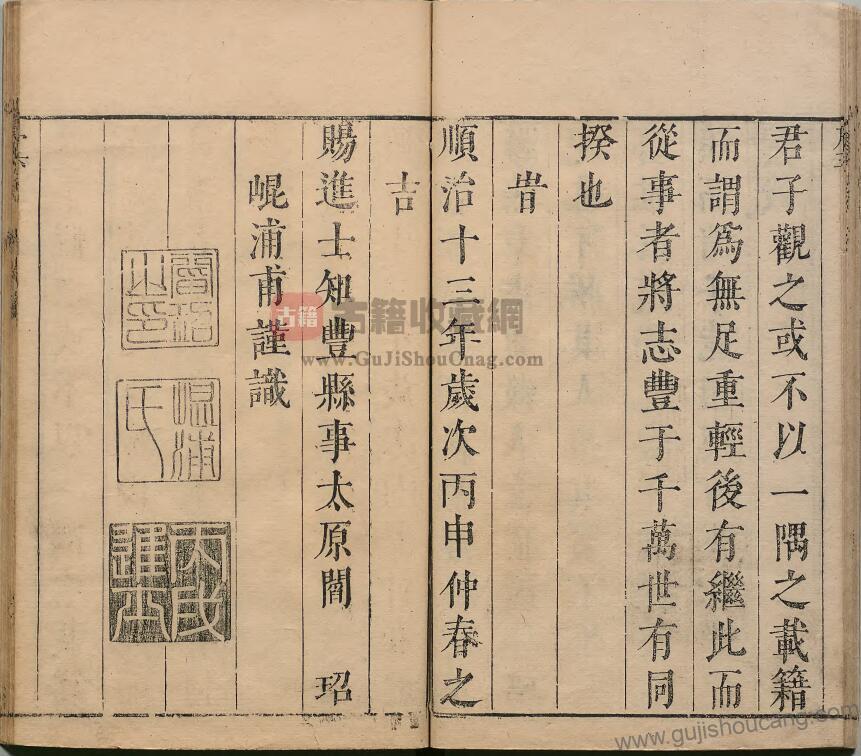 君子觀之或不以一隅之載籍
而謂爲無足重輕後有繼此而
從事者將志豐于千萬世有同
揆也
旹
順治十三年歲次丙申仲春之
吉
賜進士知豐縣事太原閻 玿
崐浦甫謹識
之印
崐浦氏
進士
古籍
古籍收藏網
www.GuJiShouCnag.com
www.gujishoucang.com